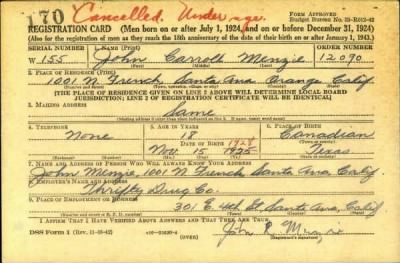 170 Cancelled. Under age. Form Approved
Budget Bureau No. 33-R012-42
REGISTRATION CARD (Men born on or after July 1, 1924, and on or before December 31, 1924)
(Also for the registration of men as they reach the 18th anniversary of the date of their birth on or after January 1, 1943.)
SERIAL NUMBER 1. NAME (Print) ORDER NUMBER
W 155 John Carroll Menzie 12090
(First) (Middle) (Last)
2. PLACE OF RESIDENCE (Print)
1001 N. French, Santa Ana Orange Calif.
(Number and street) (Town, township, village, or city) (County) (State)
[THE PLACE OF RESIDENCE GIVEN ON LINE 2 ABOVE WILL DETERMINE LOCAL BOARD
JURISDICTION; LINE 2 OF REGISTRATION CERTIFICATE WILL BE IDENTICAL]
3. MAILING ADDRESS
Same
4. TELEPHONE 5. AGE IN YEARS 6. PLACE OF BIRTH
None 18 Canadian
DATE OF BIRTH 1928
Nov 15 1925 Texas
7. NAME AND ADDRESS OF PERSON WHO WILL ALWAYS KNOW YOUR ADDRESS
John Menzie, 1001 N French Santa Ana, Calif.
8. EMPLOYER'S NAME AND ADDRESS
Thrifty Drug Co.
9. PLACE OF EMPLOYMENT OR BUSINESS
301 E. 4th St Santa Ana, Calif
I AFFIRM THAT I HAVE VERIFIED ABOVE ANSWERS AND THAT THEY ARE TRUE.
DSS Form 1 (Rev. 11-16-42) John
(Registrant's signature)